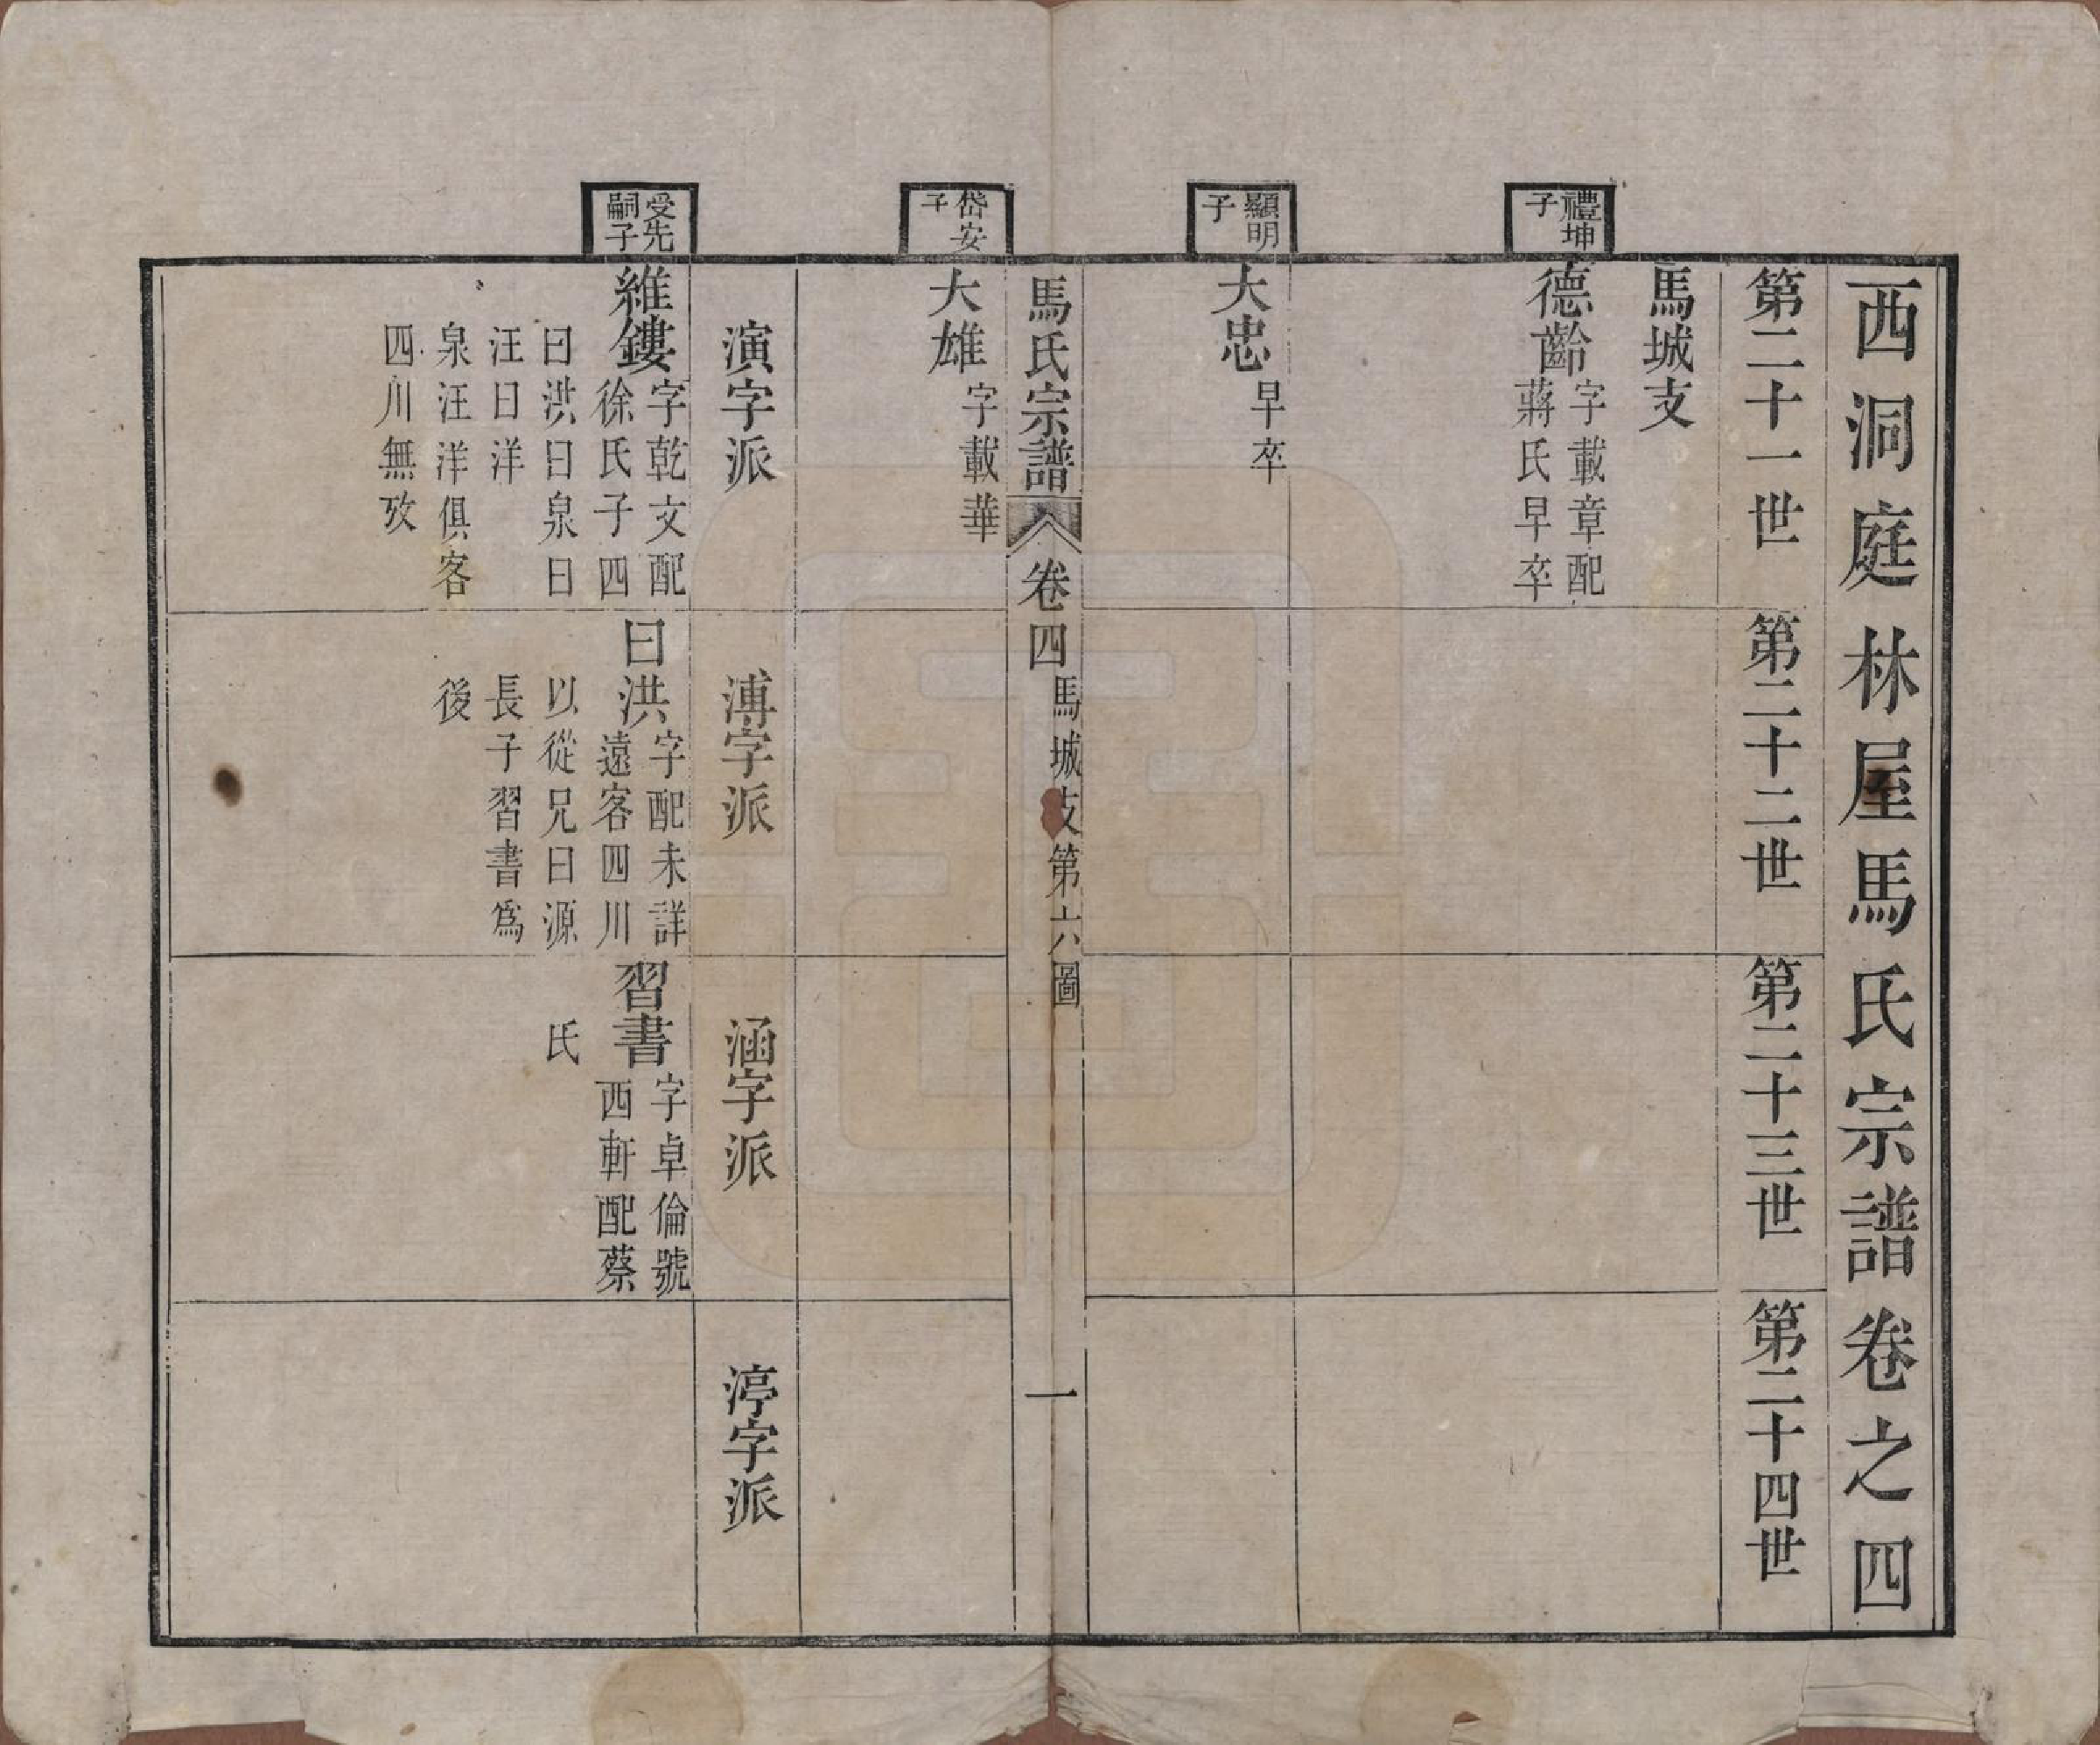 西洞庭林屋馬氏宗譜卷之四
第二十一世
第二十二世
第二十三世
第二十四世
馬城支
禮坤
子
德齡
字載章配
蔣氏早卒
顯明
子
大忠
早卒
馬氏宗譜
卷四
馬城支第六圖
一
岱安
子
大雄
字載華
演字派
溥字派
涵字派
渟字派
受先
嗣子
維鏤
字乾文配
徐氏子四
曰洪曰泉曰
汪曰洋
泉汪洋俱客
四川無攷
曰洪
字配未詳
遠客四川
以從兄曰源
長子習書爲
後
習書
字卓倫號
西軒配蔡
氏